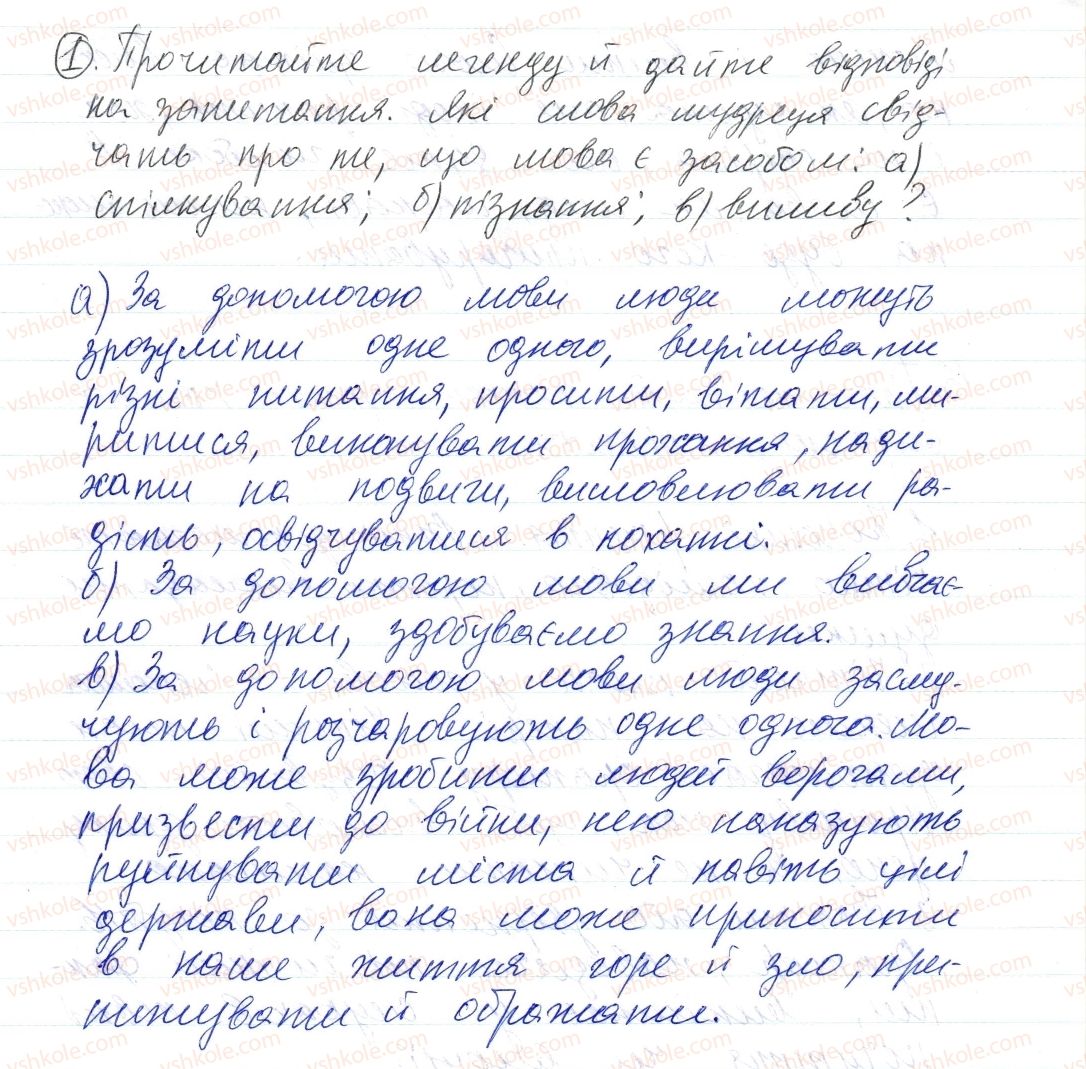 1. Прочитайте легенду й дайте відповіді
на запитання. Які слова мудреця свід-
чать про те, що мова є засобом: а)
спілкування; б) пізнання; в) впливу?
а) За допомогою мови люди можуть
зрозуміти одне одного, вирішувати
різні питання, просити, вітати, ми-
ритися, виконувати прохання, нади-
хати на подвиги, висловлювати ра-
дість, освідчуватися в коханні.
б) За допомогою мови ми вивчає-
мо науки, здобуваємо знання.
в) За допомогою мови люди засму-
чують і розчаровують одне одного. Мо-
ва може зробити людей ворогами,
призвести до війни, нею наказують
руйнувати міста й навіть цілі
держави, вона може приносити
в наше життя горе й зло, при-
нижувати й ображати.